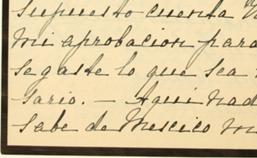 supuesto cuenta
mi aprobacion para
se gaste lo que sea
sario. — Aqui nad
sabe de Mexico ni